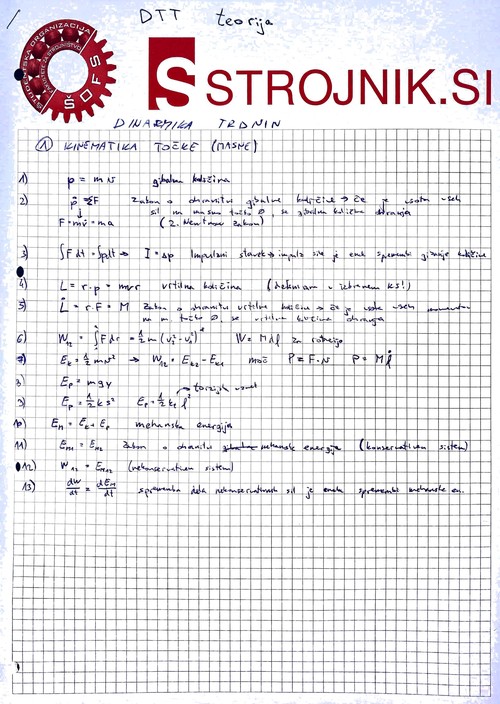 1
DTT teorija
ŠTUDENTSKA ORGANIZACIJA
FAKULTETE ZA STROJNIŠTVO
ŠOFS
STROJNIK.SI
DINAMIKA TRDNIN
① KINEMATIKA TOČKE (MASNE)
1) p = mv gibalna količina
2) ṗ = ΣF Zakon o ohranitvi gibalne količine → če je vsota vseh
sil na masno točko ∅, se gibalna količina ohranja
F = mv̇ = ma (2. Newtonov zakon)
3) ∫F dt = ∫ṗ dt → I = Δp Impulzni stavek → impulz sile je enak spremembi gibalne količine
4) L = r·p = mvr vrtilna količina (definirana v izbranem KS!)
5) L̇ = r·F = M Zakon o ohranitvi vrtilne količine → če je vsota vseh momentov
na m. točko ∅, se vrtilna količina ohranja
6) W₁₂ = ∫F dr = ½ m (v₂² - v₁²) W = M za rotacijo
7) Eₖ = ½ mv² → W₁₂ = Eₖ₂ - Eₖ₁ moč P = F·v P = M
8) Eₚ = mgy
9) Eₚ = ½ k s² Eₚ = ½ kₜ → torzijska vzmet
10) Eₘ = Eₖ + Eₚ mehanska energija
11) Eₘ₁ = Eₘ₂ Zakon o ohranitvi mehanske energije (konservativen sistem)
12) W₁₂ = (nekonservativen sistem)
13) dW/dt = dEₘ/dt sprememba dela nekonservativnih sil je enaka spremembi mehanske en.